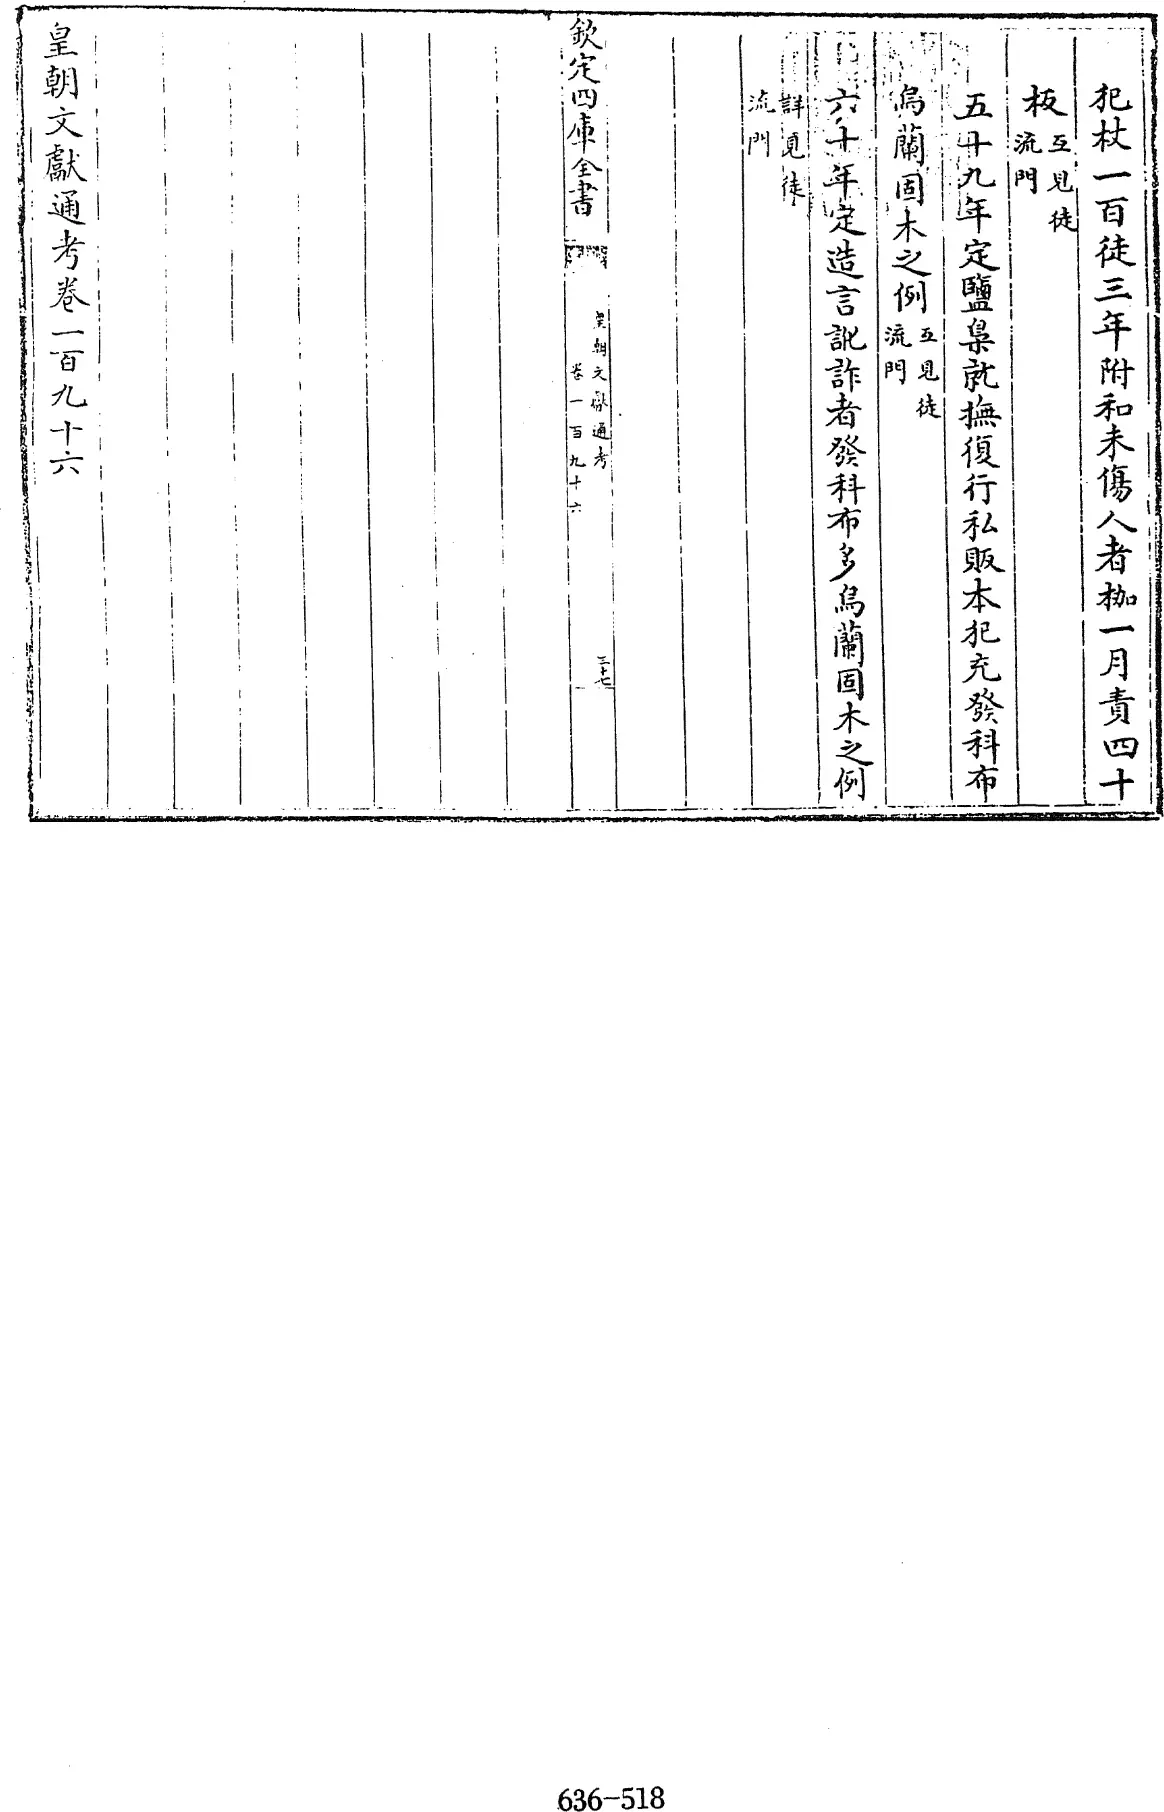 犯杖一百徒三年附和未傷人者枷一月責四十
板互見徒流門
五十九年定鹽梟就撫復行私販本犯充發科布
烏蘭固木之例互見徒流門
六十年定造言訛詐者發科布多烏蘭固木之例
詳見徒流門
欽定四庫全書
皇朝文獻通考
卷一百九十六
三十七
皇朝文獻通考卷一百九十六
636-518